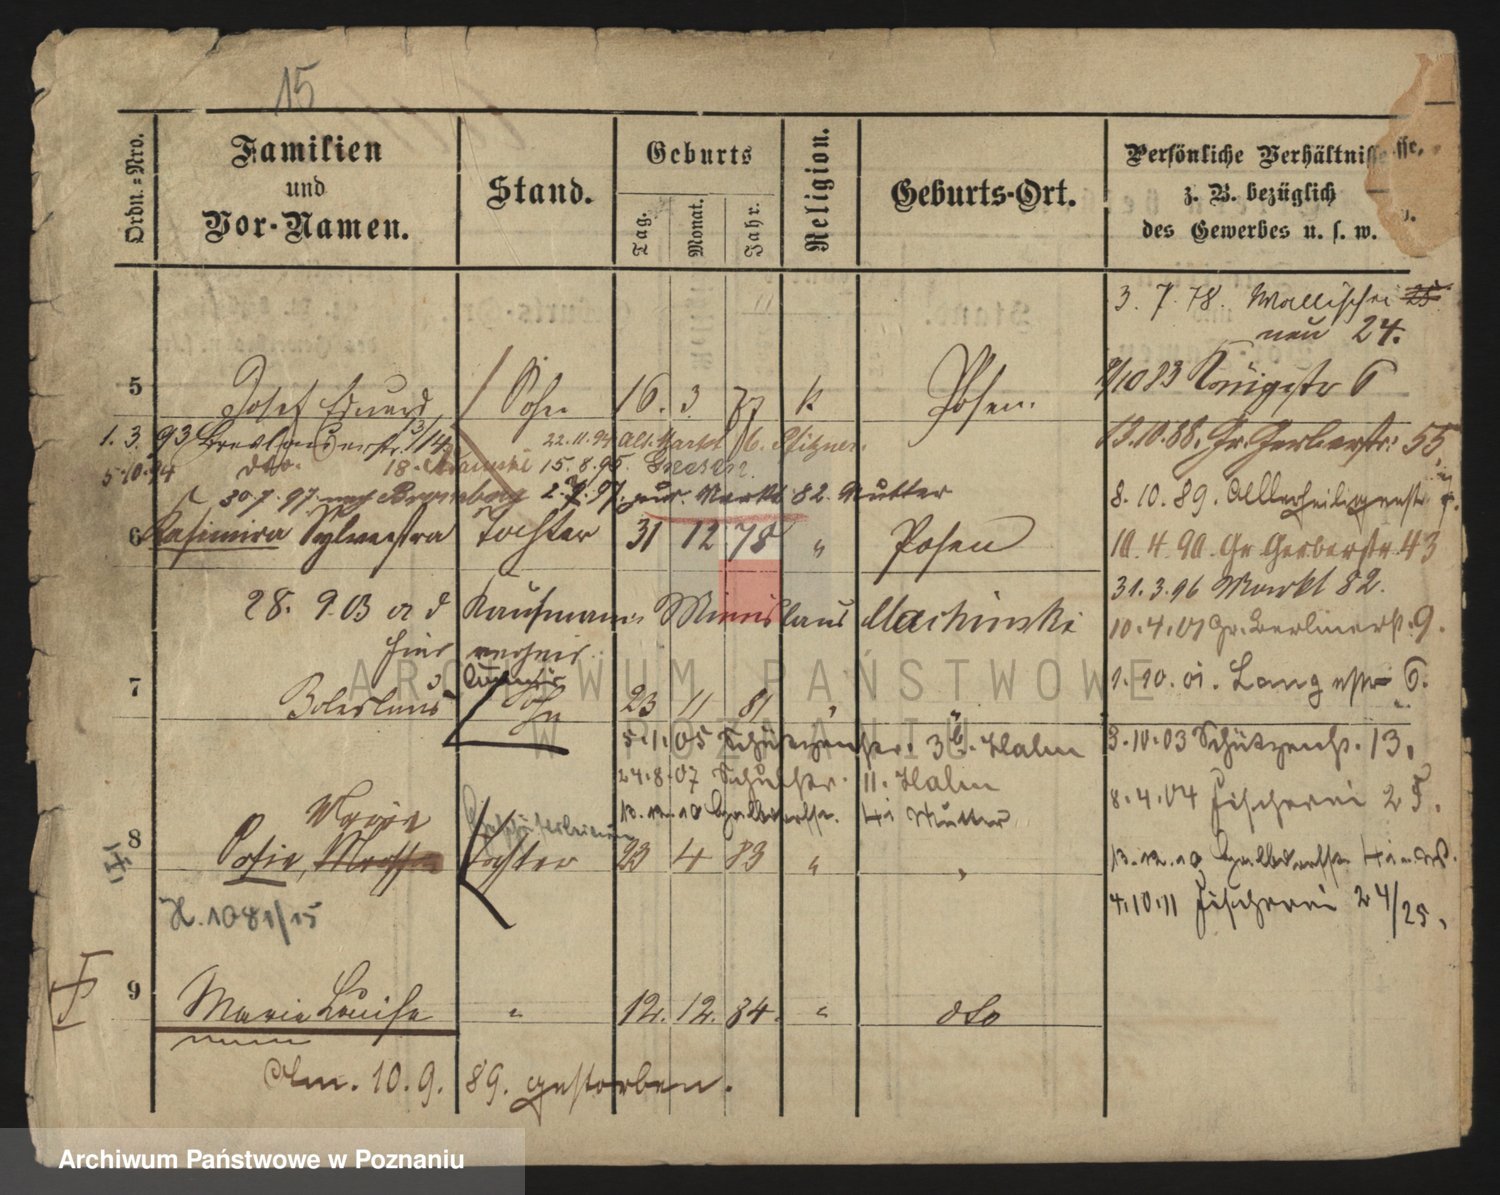 15
Ordn.-Nro.
Familien
und
Vor-Namen.
Stand.
Geburts
Tag.
Monat.
Jahr.
Religion.
Geburts-Ort.
Persönliche Verhältnisse,
z. B. bezüglich
des Gewerbes u. s. w.
3. 7. 78. Wallischei 25
neu 24.
5 Josef Eduard, Sohn 16. 3. 77 k. Posen.
9/10 83 Königstr 6
1. 3. 93 Breslauerstr. 22.11.94 Alt. Markt 6. Pfitzner.
13.10.88. Gr. Gerberstr: 55
5.10.94 dto. 18. 15.8.95. Gnesen.
30.7.97. nach Bromberg 2.9.97. zur. Markt 82. Mutter
8. 10. 89. Allerheiligenstr 4.
6 Kasimira Sylvestra Tochter 31 12 78 " Posen
10. 4. 90. Gr Gerberstr. 43
31. 3. 96 Markt 82.
28. 9. 03 a d Kaufmann Mieislaus Machinski
10. 4. 01 Gr. Berlinerst. 9.
hier verheir.
7 Boleslaus Sohn 23 11 81 "
1. 10. 01. Langestr 6.
5.1.05 Schützenstr. 3b. Halm
3.10.03 Schützenst. 13.
24.8.07 Schulstr. 11. Halm
8. 4. 04 Fischerei 25.
13.12.10 Halbdorfstr. 4i Mutter
Marie
8 Sofie, Tochter 23 4 83 " "
13. 12. 10 Halbdorfstr 4i
H. 1081/15
4.10.11 Fischerei 24/25.
9 Marie Louise " 12. 12. 84. " dto
Am. 10. 9. 89. gestorben.
ARCHIWUM PAŃSTWOWE
W POZNANIU
Archiwum Państwowe w Poznaniu